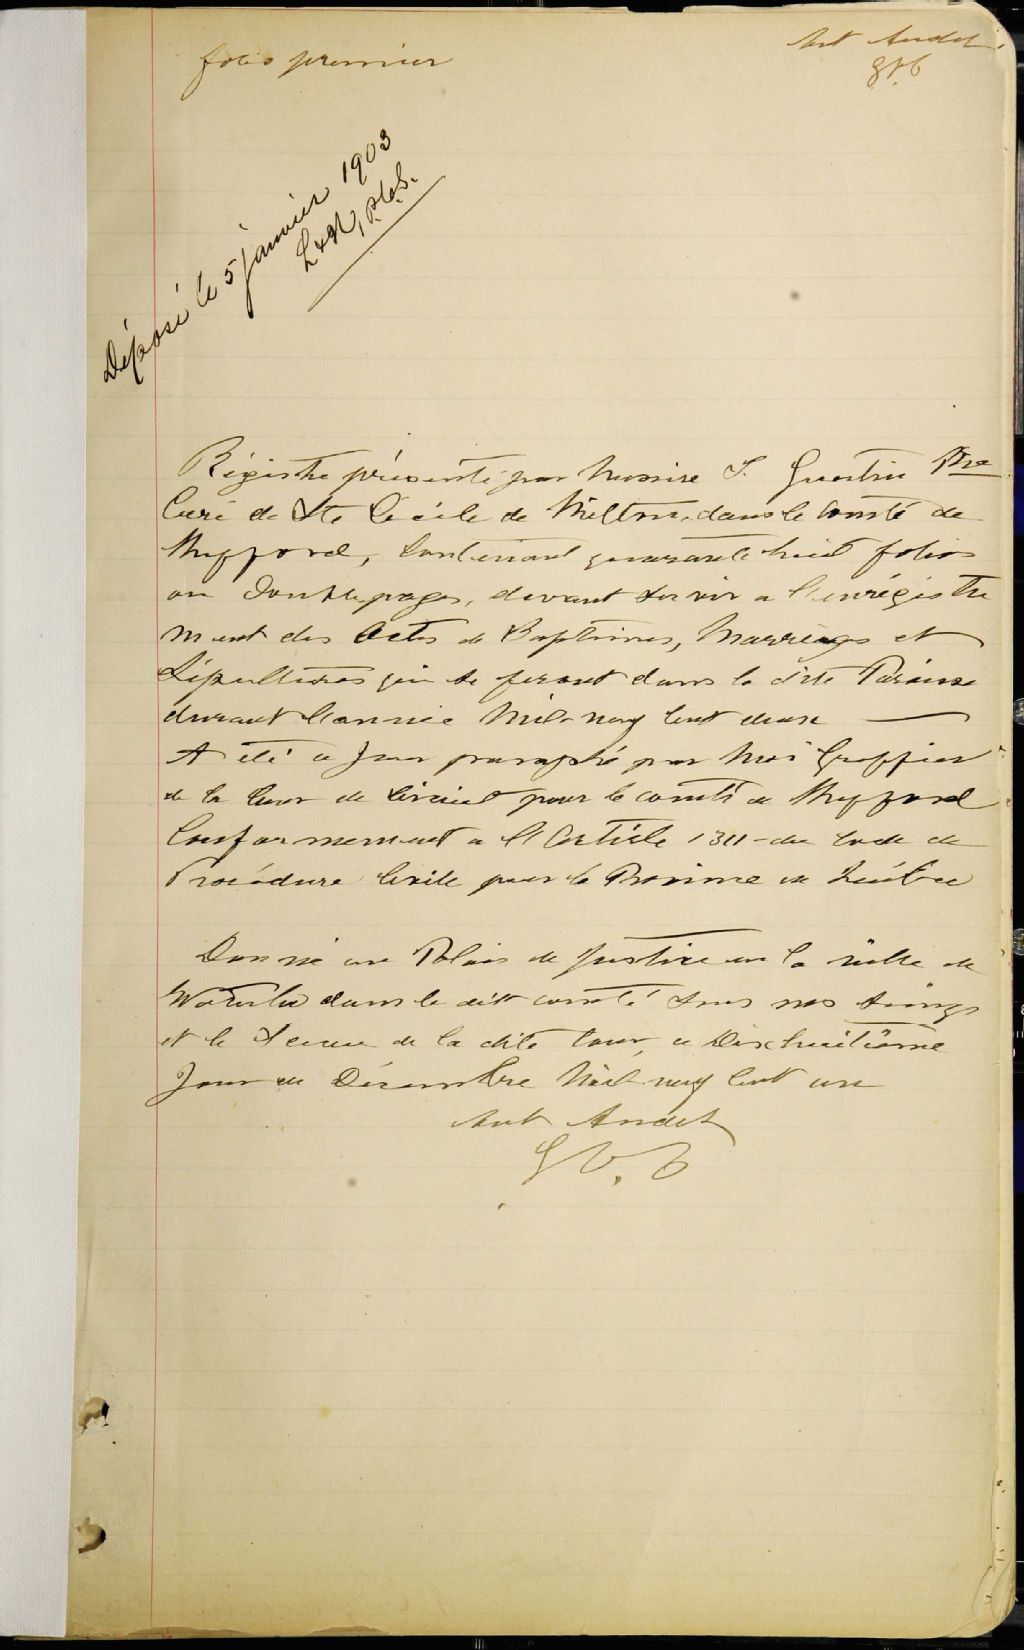 folio premier
Ant Audet
Déposé le 5 janvier 1903
Régistre présenté par Messire J. Guertin Ptre
Curé de Ste Cécile de Milton, dans le Comté de
Shefford, Contenant quarante huit folios
ou Double pages, devant servir a l'enrégistre
ment des Actes de Baptêmes, Marriages et
Sépultures qui se feront dans la dite Paroisse
durant l'année Mil neuf Cent deux
A été ce Jour paraphé par Moi Greffier
de la Cour de Circuit pour le comté de Shefford
Conformement a l'Article 1311 du Code de
Procédure Civile pour la Province de Québec
Donné au Palais de Justice en la ville de
Waterloo dans le dit comté sous nos Seings
et le Sceau de la dite Cour, ce Dixhuitième
Jour de Décembre Mil neuf Cent un
Ant Audet